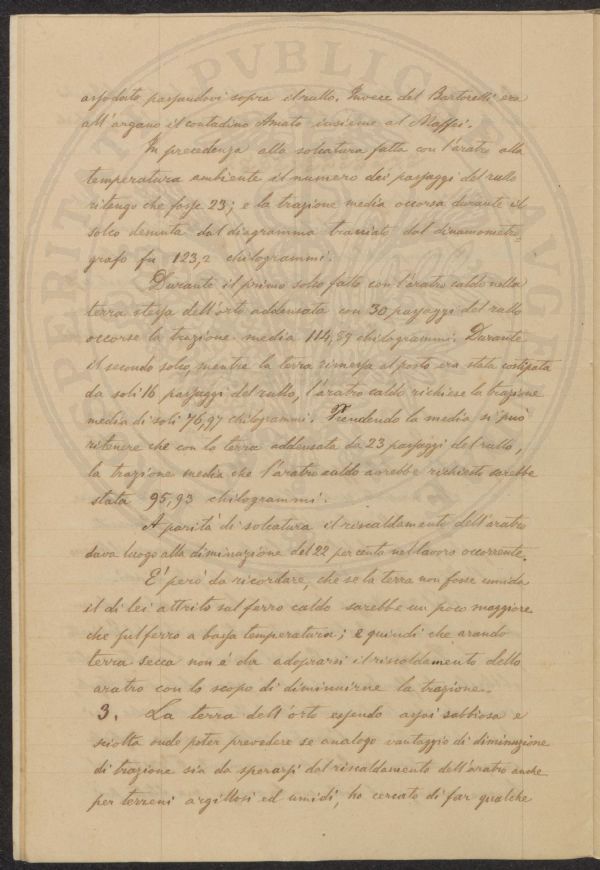 assodata passandovi sopra il rullo. Invece del Bartorelli era
all'argano il contadino Amato insieme al Maffei.
In precedenza alla solcatura fatta con l'aratro alla
temperatura ambiente il numero dei passaggi del rullo
ritengo che fosse 23; e la trazione media occorsa durante il
solco desunta dal diagramma tracciato dal dinamometro=
grafo fu 123,2 chilogrammi.
Durante il primo solco fatto con l'aratro caldo nella
terra stessa dell'orto addensata con 30 passaggi del rullo
occorse la trazione media 114,89 chilogrammi. Durante
il secondo solco, mentre la terra rimossa al posto era stata costipata
da soli 16 passaggi del rullo, l'aratro caldo richiese la trazione
media di soli 76,97 chilogrammi. Prendendo la media si può
ritenere che con la terra addensata da 23 passaggi del rullo,
la trazione media che l'aratro caldo avrebbe richiesto sarebbe
stata 95,93 chilogrammi.
A parità di solcatura il riscaldamento dell'aratro
dava luogo alla diminuzione del 22 per cento nel lavoro occorrente.
E' però da ricordare, che se la terra non fosse umida
il di lei attrito sul ferro caldo sarebbe un poco maggiore
che sul ferro a bassa temperatura; e quindi che arando
terra secca non è da adoprarsi il riscaldamento dello
aratro con lo scopo di diminuirne la trazione.
3. La terra dell'orto essendo assai sabbiosa e
sciolta onde poter prevedere se analogo vantaggio di diminuzione
di trazione sia da sperarsi dal riscaldamento dell'aratro anche
per terreni argillosi ed umidi, ho cercato di far qualche
PVBLICAE